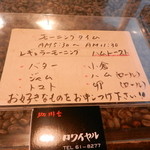 モーニングタイム
AM 5:30 ～ AM 11:30
レギュラーモーニング
ハムトースト
・バター
・小倉
・ジャム
・ハム (ロール)
・トマト
・卵 (ロール)
お好きなものをお申しつけ下さい!!
珈琲室
ロワイヤル
TEL 61-8277